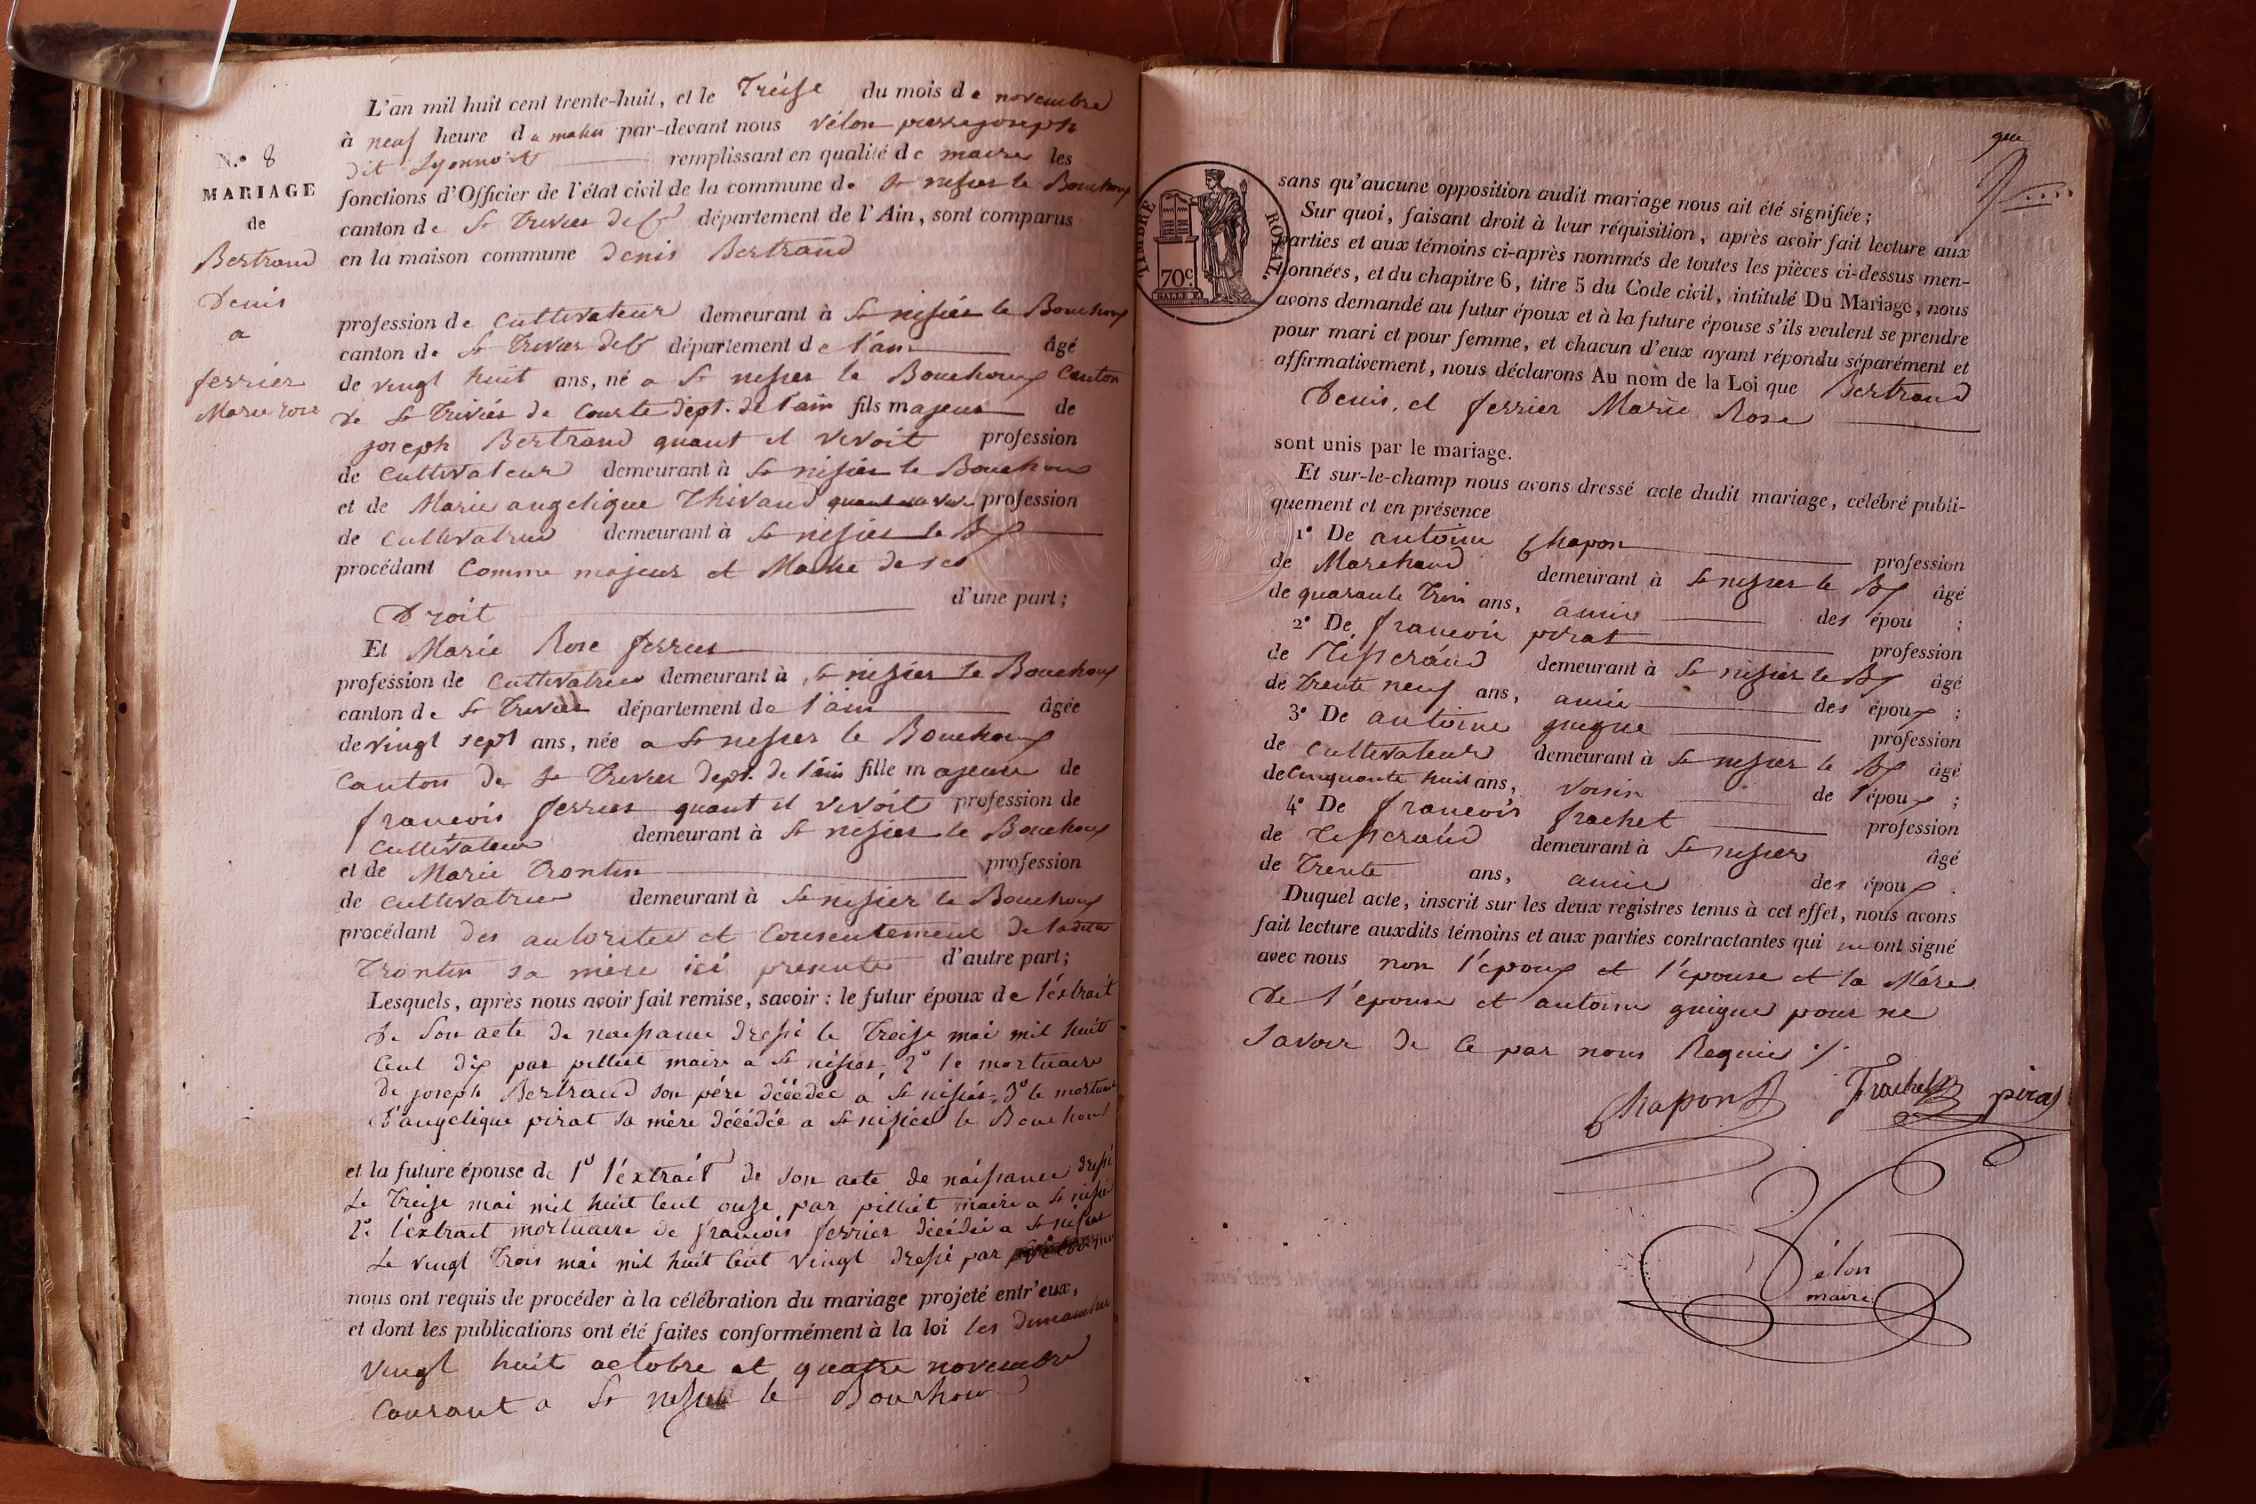 L'an mil huit cent trente-huit, et le Treise du mois de novembre
à neuf heure du matin par-devant nous vélon pierre joseph
dit Lyonnois remplissant en qualité de maire les
N.º 8
MARIAGE
de
Bertrand
Denis
a
ferrier
Marie rose
fonctions d'Officier de l'état civil de la commune de St nisier le Bouchoux
canton de St Trivier de Ctes département de l'Ain, sont comparus
en la maison commune Denis Bertrand
profession de cultivateur demeurant à St nisier le Bouchoux
canton de St Trivier de Ctes département de l'ain âgé
de vingt huit ans, né a St nisier le Bouchoux Canton
de St Trivier de Courte dept. de l'ain fils majeur de
joseph Bertrand quant il vivoit profession
de cultivateur demeurant à St nisier le Bouchoux
et de Marie angelique Thivaud quant elle vivoit profession
de cultivatrice demeurant à St nisier le Bx
procédant Comme majeur et Maitre de ses
Droit d'une part;
Et Marie Rose ferrier
profession de cultivatrice demeurant à St nisier le Bouchoux
canton de St Trivier département de l'ain âgée
de vingt sept ans, née a St nisier le Bouchoux
Canton de St Trivier dept. de l'ain fille majeure de
francois ferrier quant il vivoit profession de
cultivateur demeurant à St nisier le Bouchoux
et de Marie Trontin profession
de cultivatrice demeurant à St nisier le Bouchoux
procédant des autorités et Consentement de ladite
Trontin sa mère ici presente d'autre part;
Lesquels, après nous avoir fait remise, savoir: le futur époux de l'éxtrait
de Son acte de naissance dressé le Treise mai mil huit
Cent dix par pilliet maire a St nisier, 2º le mortuaire
de joseph Bertrand son pére décédée a St nisier, 3º le mortuaire
d'angelique pirat sa mère décédée a St nisier le Bouchoux
et la future épouse de 1º l'éxtrait de son acte de naissance dressé
le Treise mai mil huit Cent onze par pilliet maire a St nisier
2º l'éxtrait mortuaire de francois ferrier décédé a St nisier
le vingt Trois mai mil huit Cent vingt dressé par
nous ont requis de procéder à la célébration du mariage projeté entr'eux,
et dont les publications ont été faites conformément à la loi les dimanches
vingt huit octobre et quatre novembre
Courant a St nisier le Bouchoux
TIMBRE ROYAL.
70c.
sans qu'aucune opposition audit mariage nous ait été signifiée;
Sur quoi, faisant droit à leur réquisition, après avoir fait lecture aux
parties et aux témoins ci-après nommés de toutes les pièces ci-dessus men-
tionnées, et du chapitre 6, titre 5 du Code civil, intitulé Du Mariage, nous
avons demandé au futur époux et à la future épouse s'ils veulent se prendre
pour mari et pour femme, et chacun d'eux ayant répondu séparément et
affirmativement, nous déclarons Au nom de la Loi que Bertrand
Denis, et ferrier Marie Rose
sont unis par le mariage.
Et sur-le-champ nous avons dressé acte dudit mariage, célébré publi-
quement et en présence
1º De antoine Chapon profession
de Marchand demeurant à St nisier le Bx âgé
de quarante Trois ans, amie des épou ;
2º De francois pirat profession
de Tisserand demeurant à St nisier le Bx âgé
de Trente neuf ans, amie des époux ;
3º De antoine guigue profession
de cultivateur demeurant à St nisier le Bx âgé
de Cinquante huit ans, voisin de l'époux ;
4º De francois frachet profession
de Tisserand demeurant à St nisier âgé
de Trente ans, amie des époux .
Duquel acte, inscrit sur les deux registres tenus à cet effet, nous avons
fait lecture auxdits témoins et aux parties contractantes qui ont signé
avec nous non l'époux et l'épouse et la Mére
de l'épouse et antoine guigue pour ne
savoir de Ce par nous Requis ./.
Chapon Frachet pirat
Vélon
maire